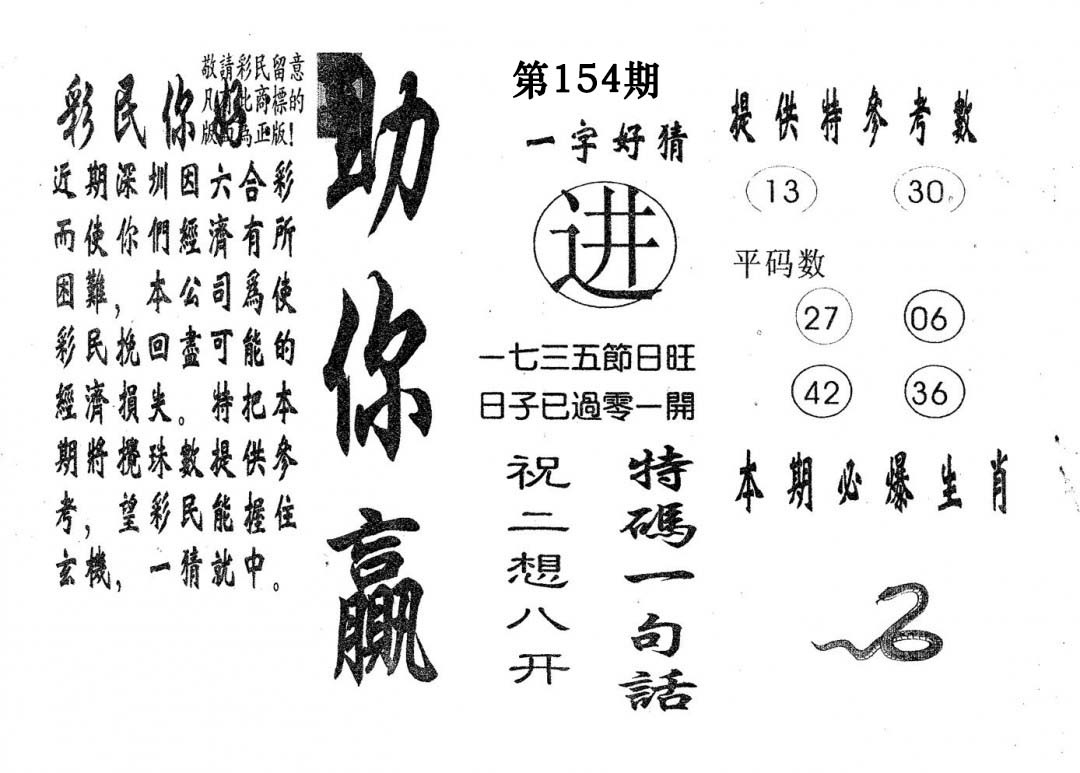 敬請彩民留意
凡有此商標的
版面為正版!
彩民你好
近期深圳因六合彩
而使你們經濟有所
困難，本公司爲使
彩民挽回盡可能的
經濟損失。特把本
期將攪珠數提供參
考，望彩民能握住
玄機，一猜就中。
助你贏
第154期
一字好猜
进
一七三五節日旺
日子已過零一開
特碼一句話
祝二想八开
提供特參考數
13 30
平码数
27 06
42 36
本期必爆生肖